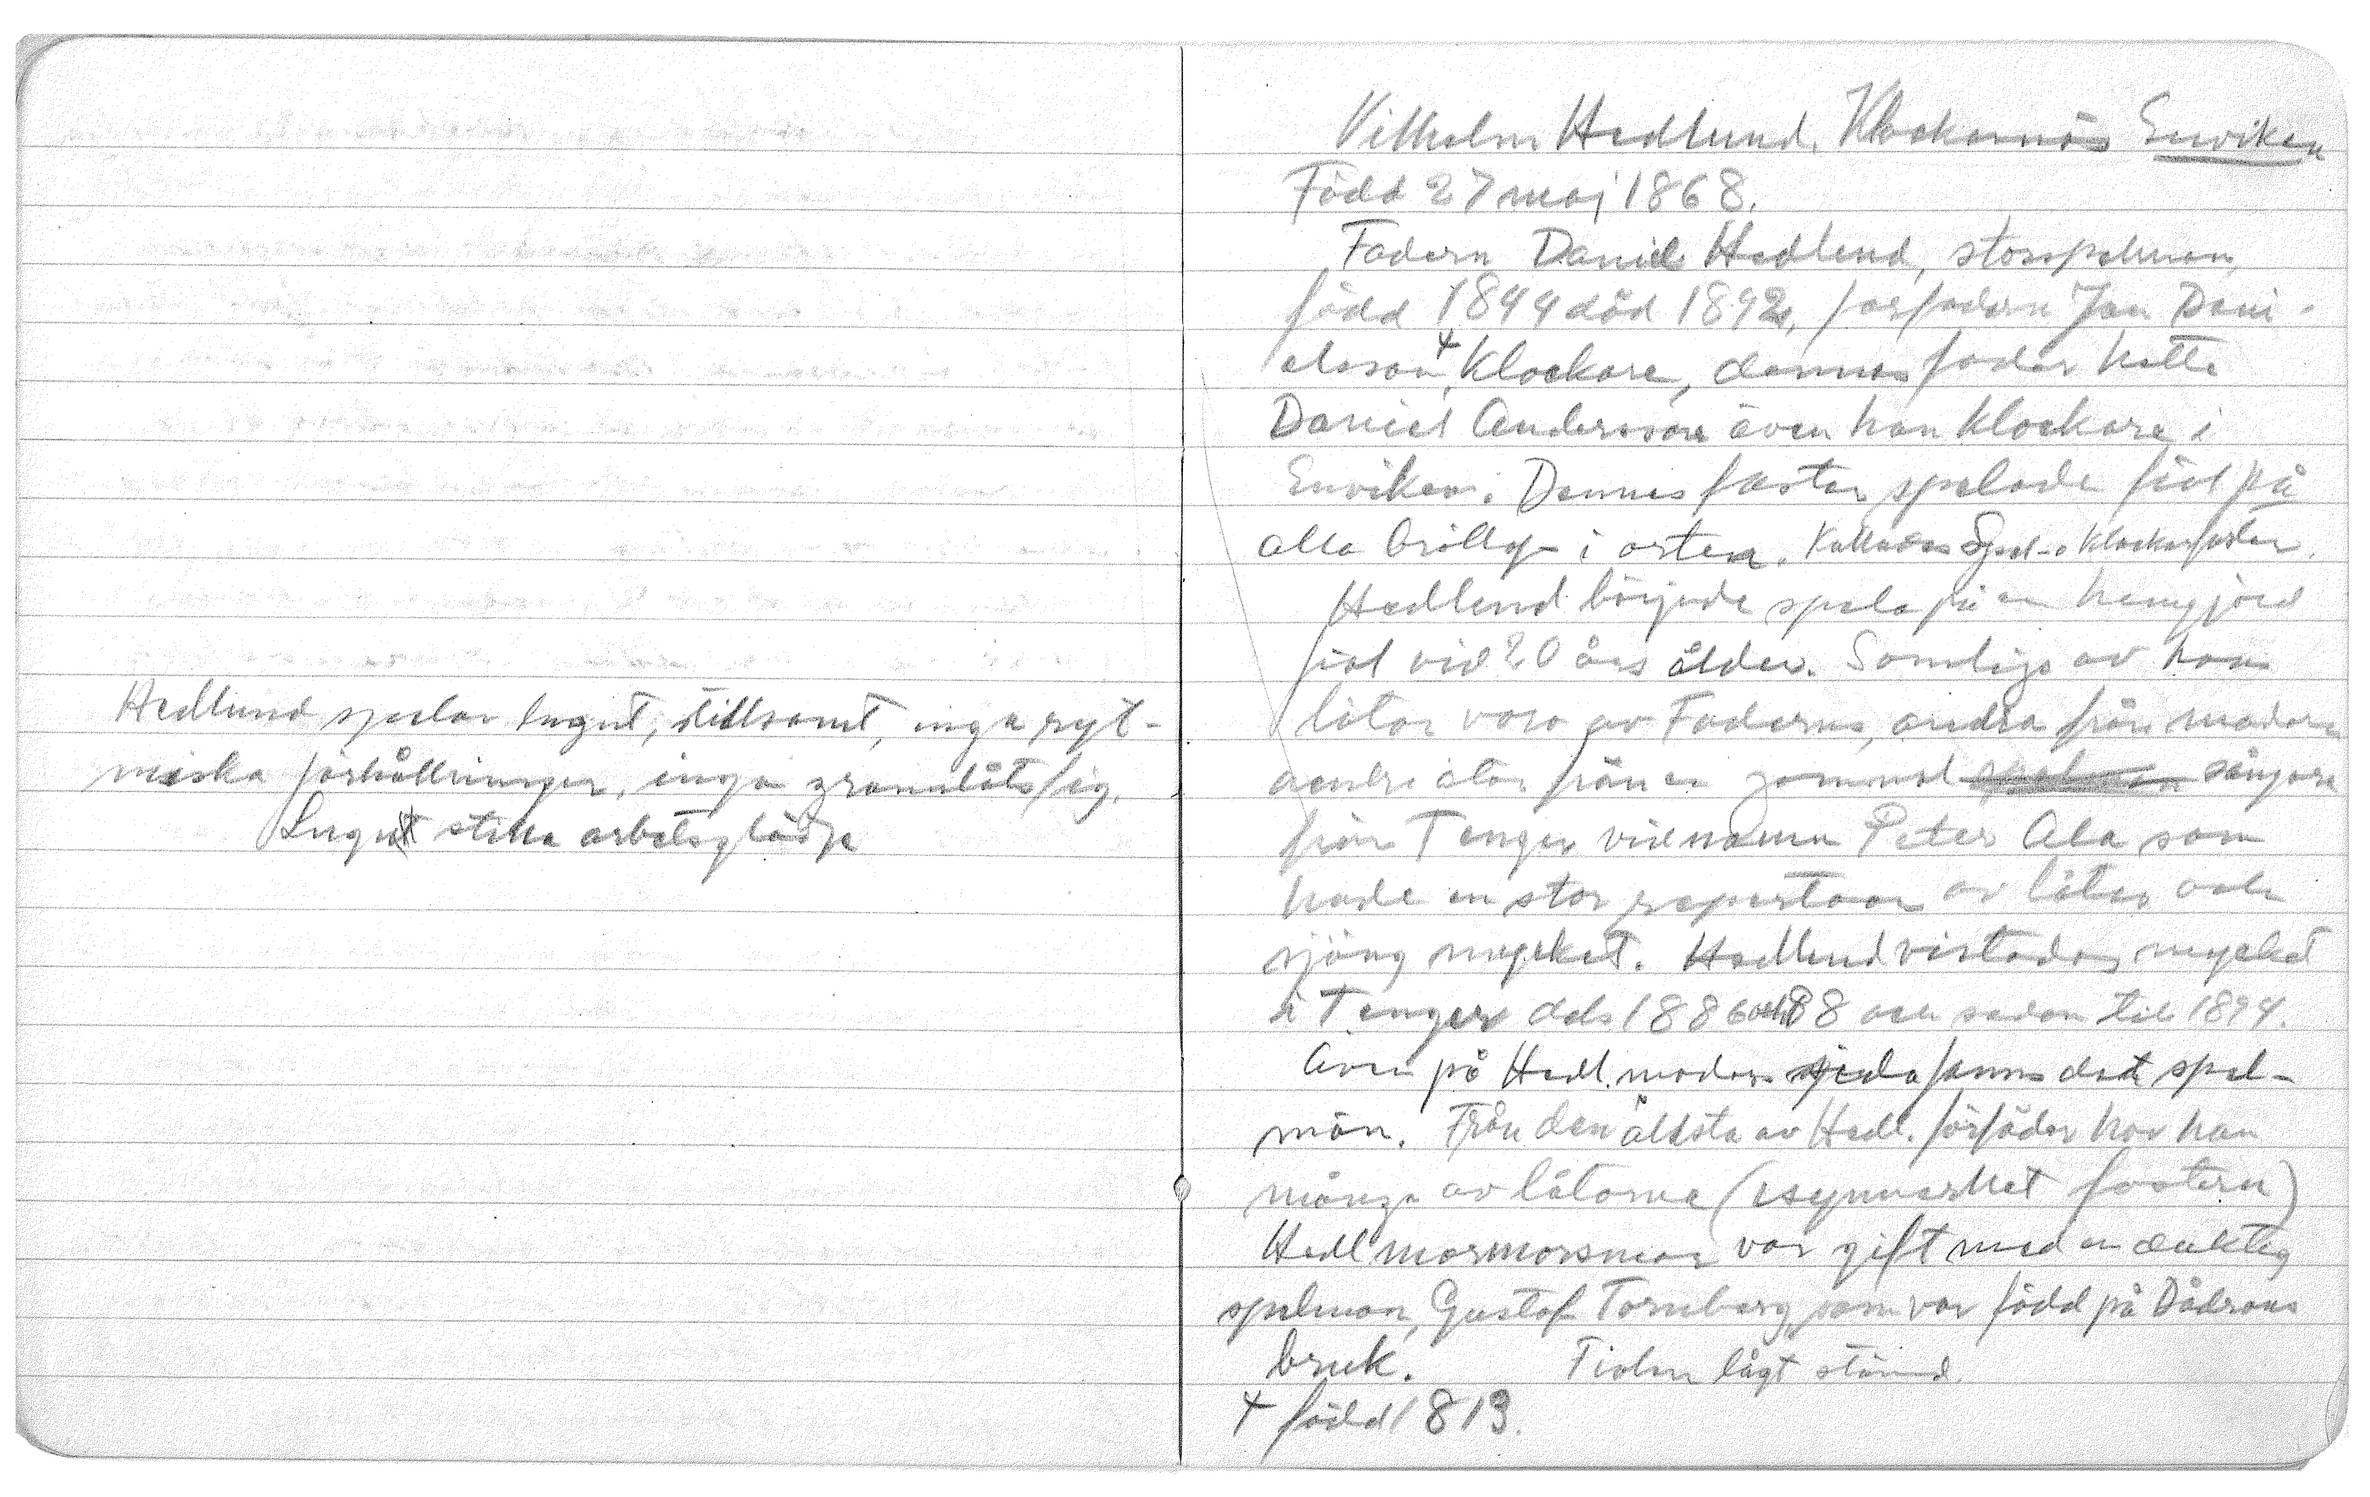 Hedlund spelar lugnt, stillsamt, inga ryt-
miska förhållninger, inga grannlåtsfig.
Lugn stilla arbetsglädje
Vilhelm Hedlund. Klockarnäs Enviken
Född 27 maj 1868.
Fadern Daniel Hedlund, storspelman,
född 1844 död 1892, farfadern Jan Dani-
elsson, + Klockare, dennes fader hette
Daniel Andersson även han klockare i
Enviken. Dennes faster spelade fiol på
alla bröllop i orten. Kallades Spel- o Klockarfaster.
Hedlund började spela på en hemgjord
fiol vid 20 års ålder. Somliga av hans
låtar voro av Faderns, andra från modern
andra åter från en gammal sångare
från Tenger vid namn Peter Ala som
hade en stor repertoar av låtar och
sjöng mycket. Hedlund vistades mycket
i Tenger dels 1886 och 88 och sedan till 1894.
Även på Hedl. moders sida fanns det spel-
män. Från den äldsta av Hedl. förfäder har han
många av låtarna (isynnerhet fastern)
Hedl mormorsmor var gift med en duktig
spelman, Gustaf Tornberg, som var född på Dådrans
bruk. Fiolen lågt stämd.
+ född 1813.